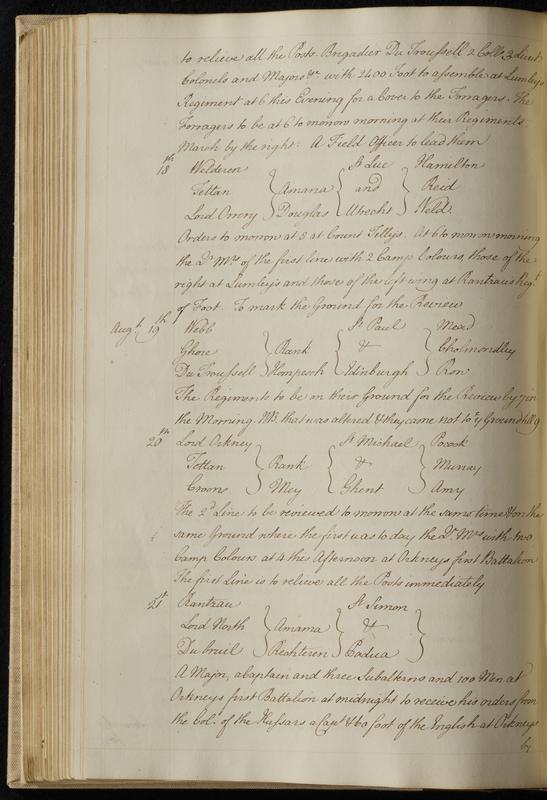 to relieve all the Posts. Brigadier Du Troussell 2 Colls 3 Lieut
Colonels and Majors &c with 2400 Foot to assemble at Lumleys
Regiment at 6 this Evening for a Cover to the Forragers. The
Forragers to be at 6 to morow morning at their Regiments
March by the right. A Field Officer to lead them
18th Welderen } { St Luc } Hamilton
Tettau } Amama { and } Reid
Lord Orrery } Douglas { Utrecht } Weld.
Orders to morow at 5 at Count Tillys. At 6 to morow morning
the Qr Mrs of the first line with 2 Camp Colours, those of the
right at Lumleys and those of the left wing at Rantzaus Regt
of Foot. To mark the Ground for the Review
Augt 19th Webb } { St Paul } Mead
Ghore } Rank { & } Cholmondley
Du Troussell } Hompesch { Edinburgh } Ron
The Regiments to be in their Ground for the Review by 7 in
the Morning. NB. that was altered & they came not to ye Ground till 9
20th Lord Orkney } { St Michael } Pocock
Tettau } Rank { & } Murray
Croons } Mey { Ghent } Amy
The 2d Line to be reviewed to morow at the same time & on the
same Ground where the first was to day the Qr Mrs with two
Camp Colours at 4 this Afternoon at Orkneys first Battalion
The first Line is to relieve all the Posts immediately
21st Rantzau } { St Simon }
Lord North } Amama { & }
Du breuil } Rechteren { Padua }
A Major, a Captain and three Subalterns and 100 Men at
Orkneys first Battalion at midnight to receive his orders from
the Col. of the Hussars a Capt & 60 foot of the English at Orkneys
by